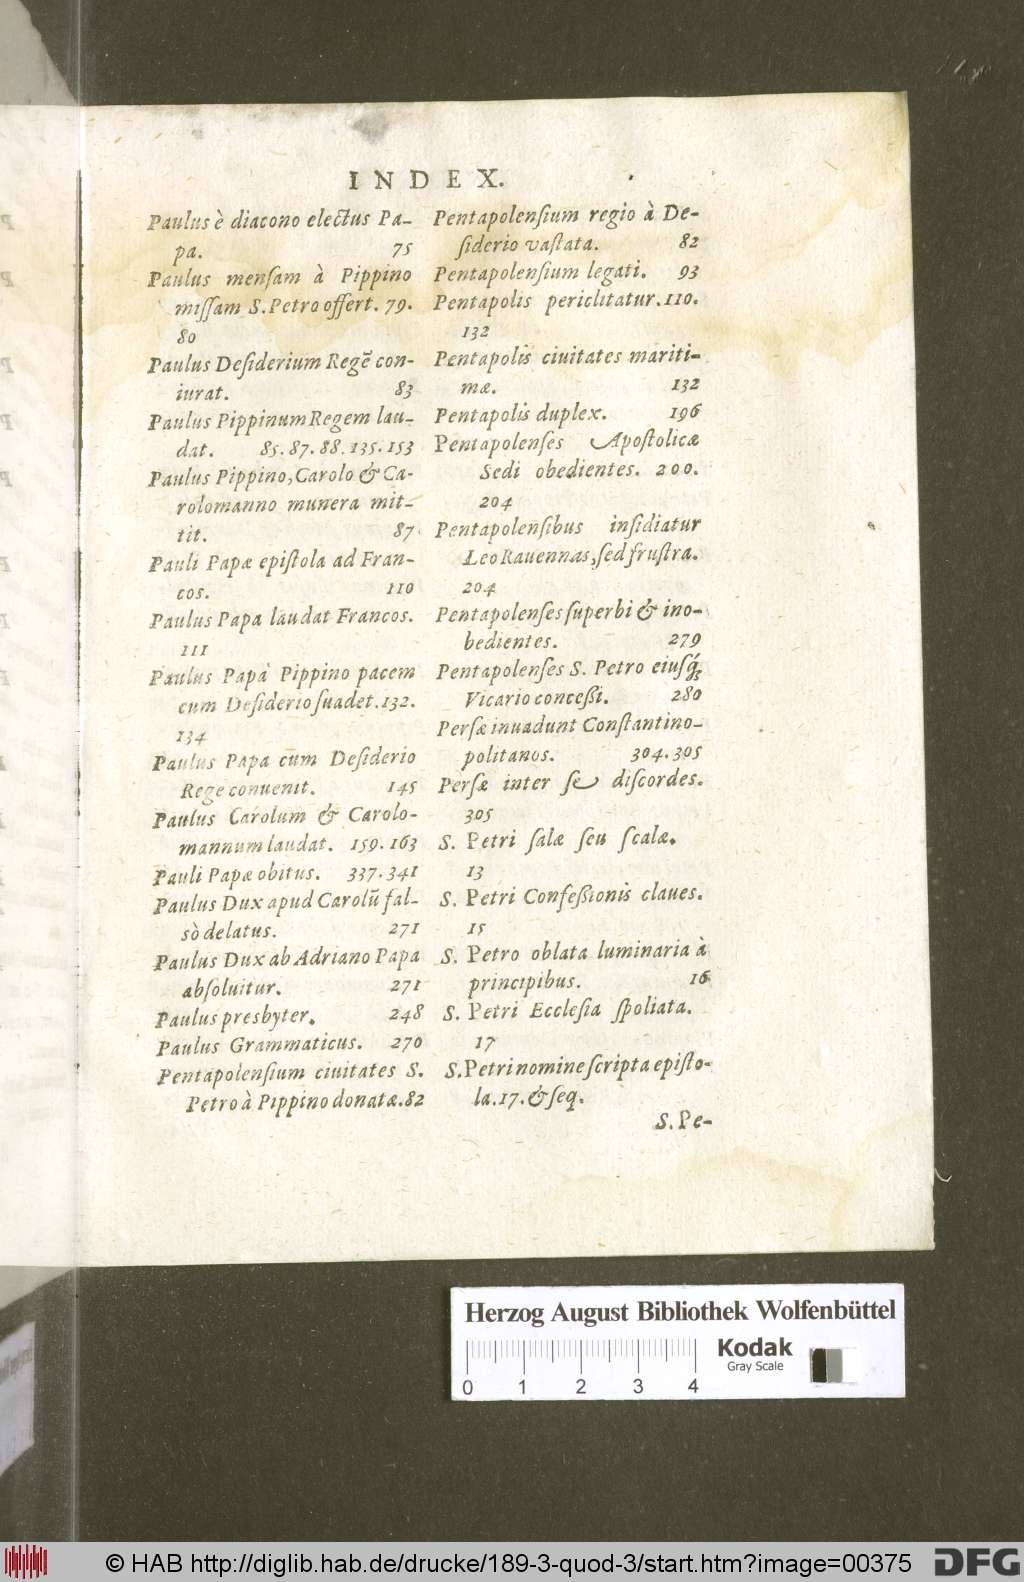 INDEX.
Paulus è diacono electus Pa-
pa. 75
Paulus mensam à Pippino
missam S. Petro offert. 79.
80
Paulus Desiderium Regẽ con-
iurat. 83
Paulus Pippinum Regem lau-
dat. 85.87.88.135.153
Paulus Pippino, Carolo & Ca-
rolomanno munera mit-
tit. 87
Pauli Papæ epistola ad Fran-
cos. 110
Paulus Papa laudat Francos.
111
Paulus Papa Pippino pacem
cum Desiderio suadet. 132.
134
Paulus Papa cum Desiderio
Rege conuenit. 145
Paulus Carolum & Carolo-
mannum laudat. 159.163
Pauli Papæ obitus. 337.341
Paulus Dux apud Carolũ fal-
sò delatus. 271
Paulus Dux ab Adriano Papa
absoluitur. 271
Paulus presbyter. 248
Paulus Grammaticus. 270
Pentapolensium ciuitates S.
Petro à Pippino donatæ. 82
Pentapolensium regio à De-
siderio vastata. 82
Pentapolensium legati. 93
Pentapolis periclitatur. 110.
132
Pentapolis ciuitates mariti-
mæ. 132
Pentapolis duplex. 196
Pentapolenses Apostolicæ
Sedi obedientes. 200.
204
Pentapolensibus insidiatur
Leo Rauennas, sed frustra.
204
Pentapolenses superbi & ino-
bedientes. 279
Pentapolenses S. Petro eiusq́;
Vicario concessi. 280
Persæ inuadunt Constantino-
politanos. 304.305
Persæ inter se discordes.
305
S. Petri salæ seu scalæ.
13
S. Petri Confessionis claues.
15
S. Petro oblata luminaria à
principibus. 16
S. Petri Ecclesia spoliata.
17
S. Petri nomine scripta episto-
la. 17. & seq.
S. Pe-
Herzog August Bibliothek Wolfenbüttel
Kodak
Gray Scale
0 1 2 3 4
© HAB http://diglib.hab.de/drucke/189-3-quod-3/start.htm?image=00375
DFG